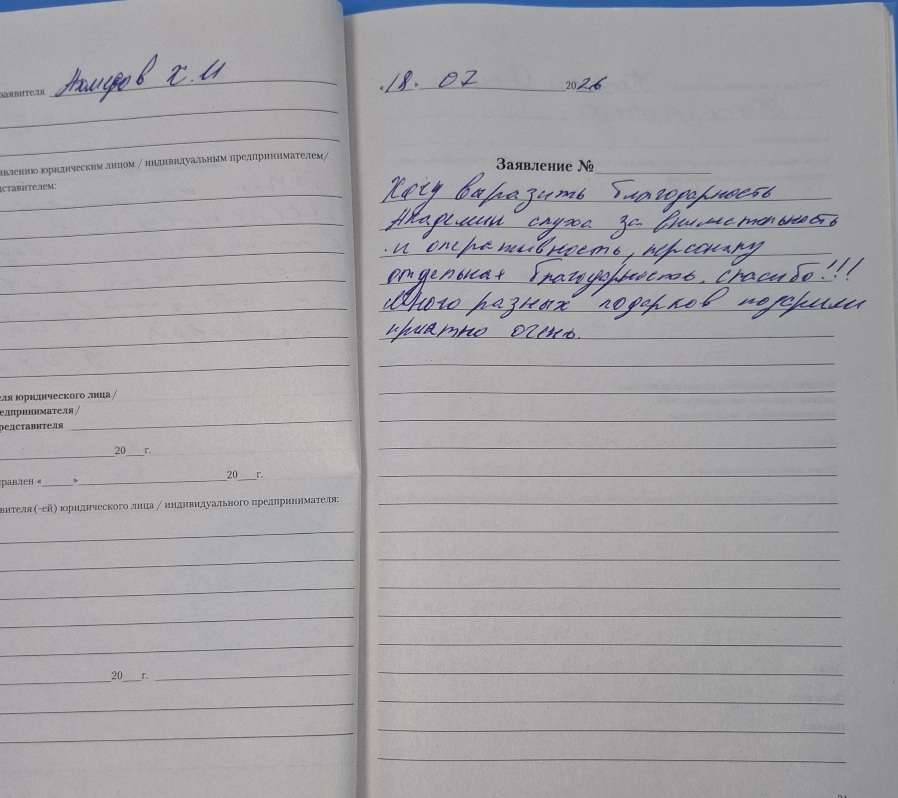 заявителя Ахмедов Х.И
авлению юридическим лицом / индивидуальным предпринимателем/
дставителем:
еля юридического лица /
едпринимателя /
редставителя
20 г.
равлен « » 20 г.
вителя (-ей) юридического лица / индивидуального предпринимателя:
20 г.
18. 07 2026
Заявление №
Хочу выразить благодарность
Академии слуха за внимательность
и оперативность, персоналу
отдельная благодарность, спасибо!!!
Много разных подарков подарили
приятно очень.